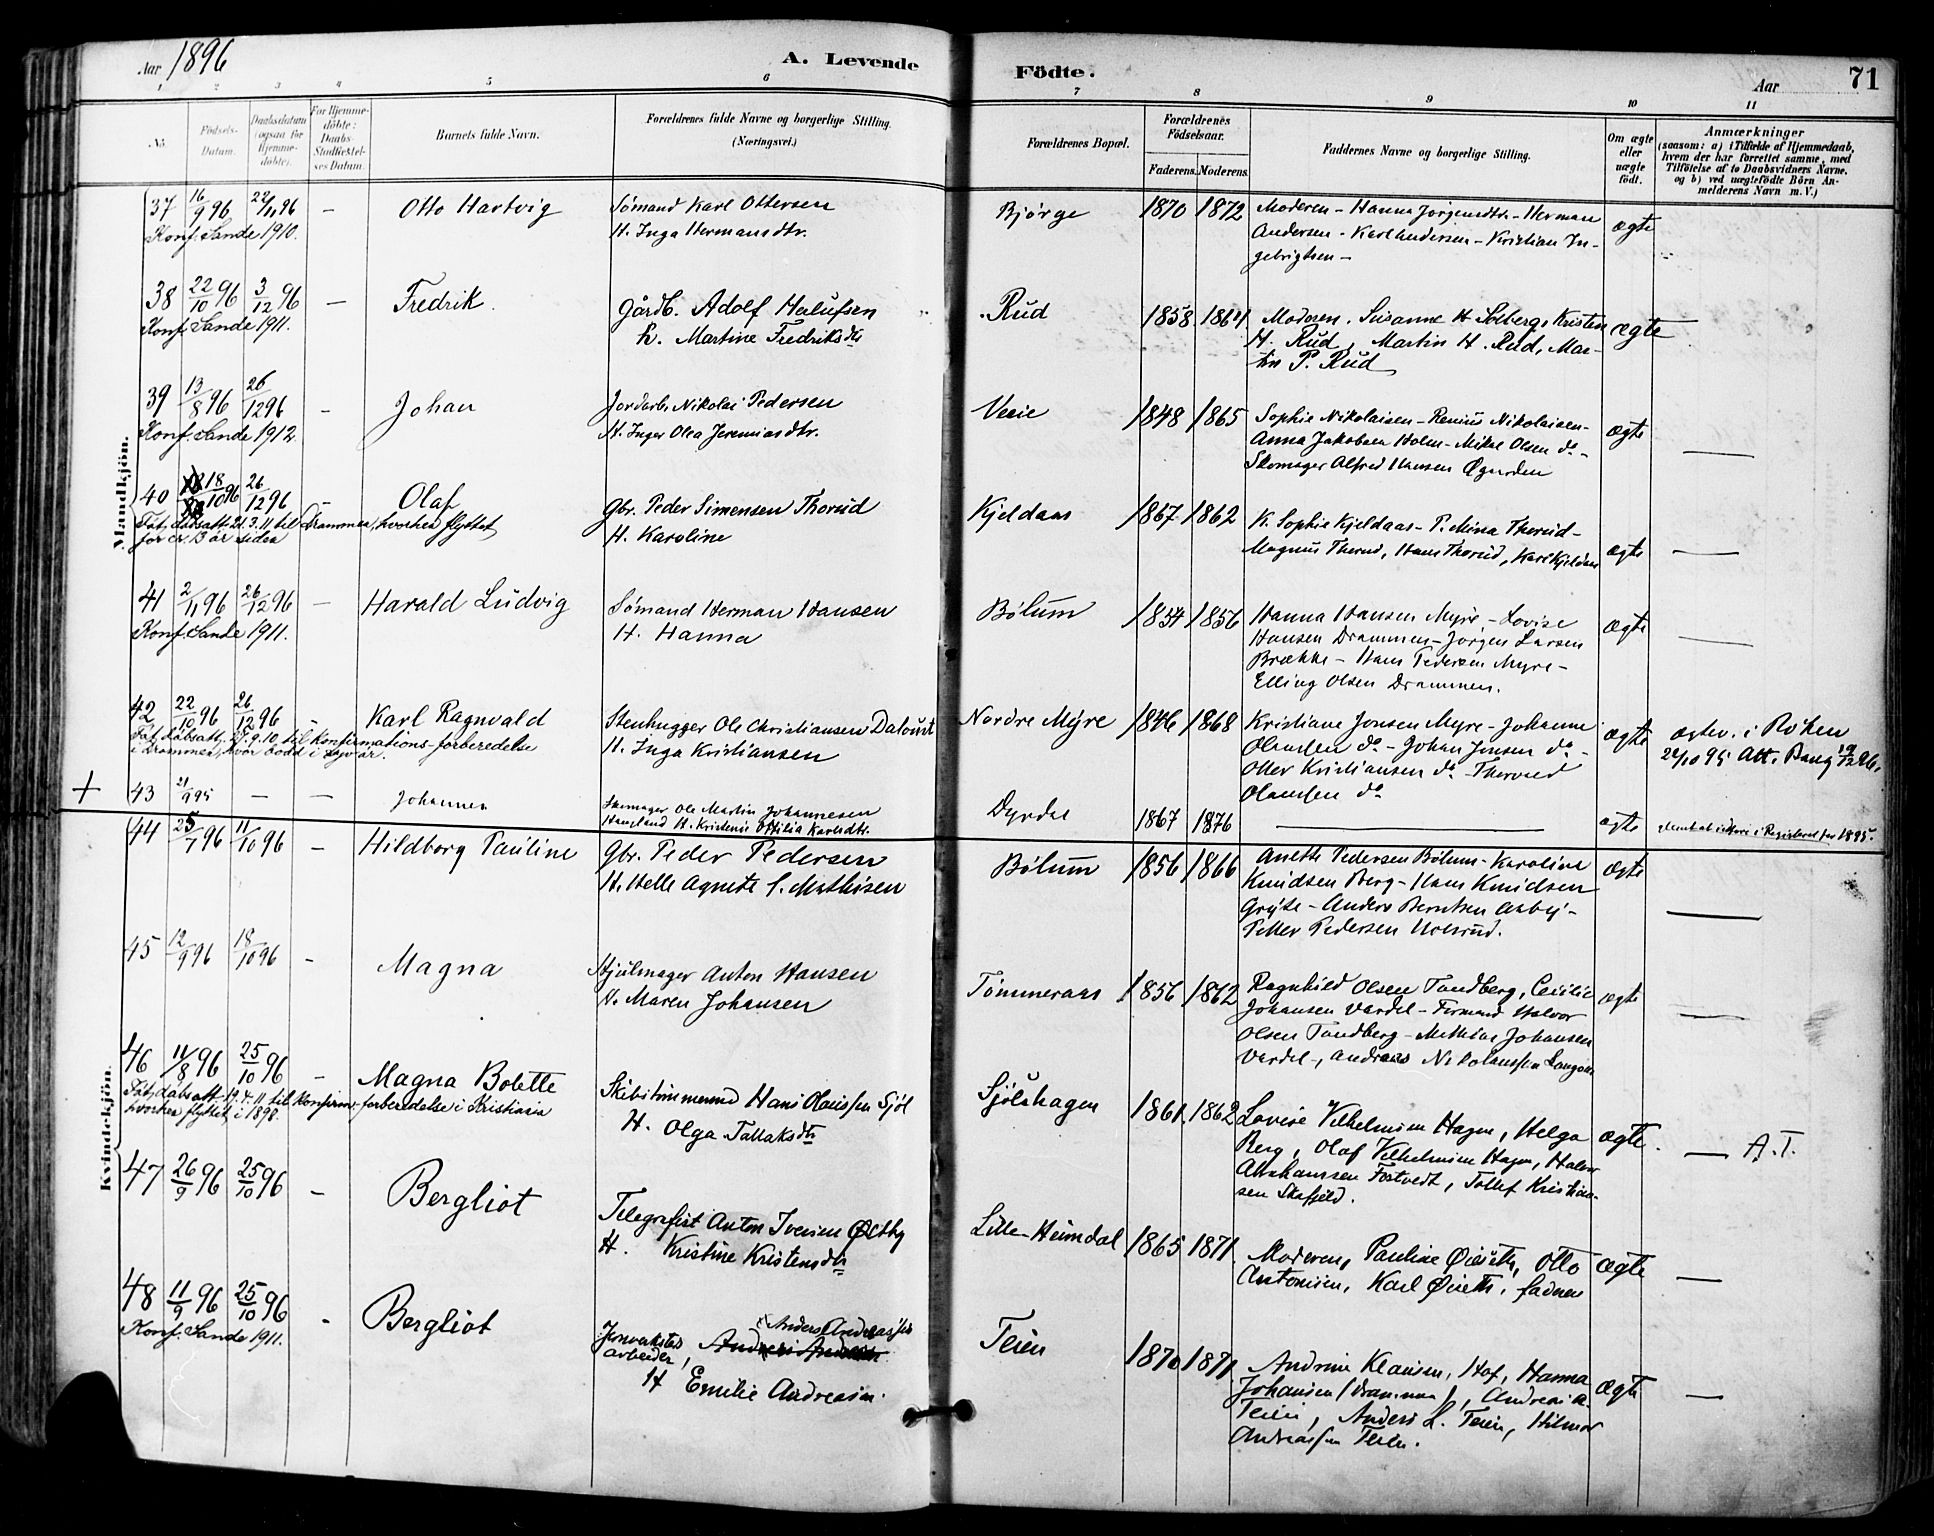 Aar 1896
A. Levende
Födte.
Aar
71
1 2 3 4 5 6 7 8 9 10 11
No.
Födsels-Datum.
Daabsdatum (ogsaa for Hjemme-döbte).
For Hjemme-döbte: Daabs-Stadfæstel-ses Datum.
Barnets fulde Navn.
Forældrenes fulde Navne og borgerlige Stilling. (Næringsvei.)
Forældrenes Bopæl.
Forældrenes Födselsaar.
Faderens. Moderens.
Faddernes Navne og borgerlige Stilling.
Om ægte eller uægte födt.
Anmærkninger
(saasom: a) i Tilfælde af Hjemmedaab,
hvem der har forrettet samme, med
Tilföielse af to Daabsvidners Navne.
og b) ved uægtefödte Börn An-
melderens Navn m. V.)
Mandkjön.
37 16/9 96 22/11 96 – Otto Hartvig
Sømand Karl Ottersen
H. Inga Hermansdtr.
Konf. Sande 1910.
Bjørge 1870 1872
Moderen – Hanna Jørgensdtr. – Herman
Andersen – Karl Andersen – Kristian In-
gebrigtsen –
ægte
38 22/10 96 3/12 96 – Fredrik.
Gårdb. Adolf Halufsen
h. Martine Fredriksdtr
Konf. Sande 1911.
Rud 1858 1864
Moderen, Susanne H Solberg, Kristen
H. Rud, Martin H. Rud, Mar-
tin P. Rud
ægte
39 13/8 96 26/12 96 – Johan
Jordarb. Nikolai Pedersen
H. Inger Olea Jeremiasdtr.
Konf. Sande 1912.
Veeie 1848 1865
Sophie Nikolaisen – Remius Nikolaisen –
Anna Jakobsen Holm – Mikal Olsen do –
Skomager Alfred Hansen Øgarden
ægte —
40 18/10 96 26/12 96 – Olaf
Fåt dåbsatt. 21.3.11 til Drammen, hvorhen flyttet
for cr. 13 år siden
Gbr. Peder Simensen Thorud
H. Karoline
Kjeldaas 1867 1862
K. Sophie Kjeldaas – P. Mina Thorud –
Magnus Thorud, Hans Thorud, Karl Kjeldaas
ægte —
41 2/11 96 26/12 96 – Harald Ludvig
Konf. Sande 1911.
Sømand Herman Hansen
H. Hanna
Bølum 1854 1856
Hanna Hansen Myre – Lovise
Hansen Drammen – Jørgen Larsen
Brække – Hans Pedersen Myre –
Elling Olsen Drammen.
ægte —
42 22/10 96 26/12 96 – Karl Ragnvald
Fåt dåbsatt. 27.9.10 til konfirmations-forberedelse
i Drammen, hvor bodd i
Stenhugger Ole Christiansen
H. Inga Kristiansen
Nordre Myre 1846 1868
Kristiane Jensen Myre – Johanne
Olausen do – Johan Jensen do –
Otter Kristiansen do – Thorvald
Olausen do
ægte
ægtev. i Røken
24/10 95 Att. Bang
+ 43 21/9 95 — — Johannes
Skomager Ole Martin Johannesen
H. Kristense Ottilia Karlsdtr.
Dyrdal 1867 1876 —
ægte
i Registeret for 1895
Kvindekjön.
44 25/7 96 11/10 96 – Hildborg Pauline
Gbr. Peder Pedersen
H. Helle Agnete f. Mathisen
Bølum 1856 1866
Anette Pedersen Bølum – Karoline
Knudsen Berg – Hans Knudsen
Grýte – Anders Berntsen Aaby –
Petter Pedersen Holsrud.
ægte —
45 12/9 96 18/10 96 – Magna
Hjulmager Anton Hansen
H. Maren Johansen
Tømmeraas 1856 1862
Ragnhild Olsen Tandberg, Cecilie
Johansen Vardel – Formand Halvor
Olsen Tandberg – Mathias Johansen
Vardel –, Andreas Nikolaussen
ægte —
46 11/8 96 25/10 96 – Magna Bolette
Fåt dåbsatt. 19.4.11 til konfirm. forberedelse i Kristiania
hvorhen flyttet i 1898.
Skibstømmermand Hans Olaussen Sjöl
H. Olga Tollaksdtr
Sjölshagen 1861 1862
Lovise Vilhelmsen Hagen, Helga
Berg, Olaf Vilhelmsen Hagen, Halvor
Abrahamsen Fostvedt, Tollef Kristian-
sen Skafjeld.
ægte. — A.T.
47 26/9 96 25/10 96 – Bergliot
Telegrafist Anton Iversen Østby
H. Kristine Kristensdtr
Lille-Heimdal 1865 1871.
Moderen, Pauline Øiseth, Otto
Antonisen, Karl Øiseth, faderen
ægte —
48 11/9 96 25/10 96 – Bergliot
Konf. Sande 1911.
Jernverksted
arbeider, Anders Andreassen
H Emilie Andreasen.
Teien 1870 1871
Andrine Klausen, Hof, Hanna
Johansen (Drammen), Andreas A.
Teien, Anders L. Teien, Hilmar
Andreassen Teien.
ægte —